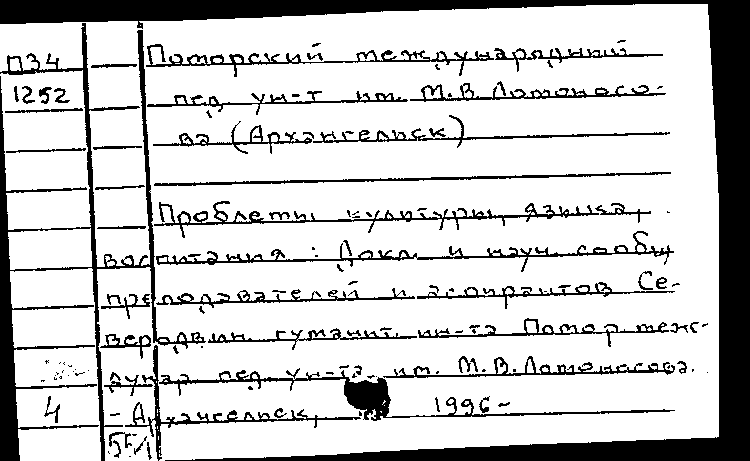 П34 Поморский международный
1252 пед. ун-т им. М.В. Ломоносо-
ва (Архангельск)
Проблемы культуры, языка,
воспитания : Докл. и науч. сообщ.
преподавателей и аспирантов Се-
веродвин. гуманит. ин-та Помор. меж-
дунар. пед. ун-та им. М.В. Ломоносова.
4 - Архангельск, 1996 -